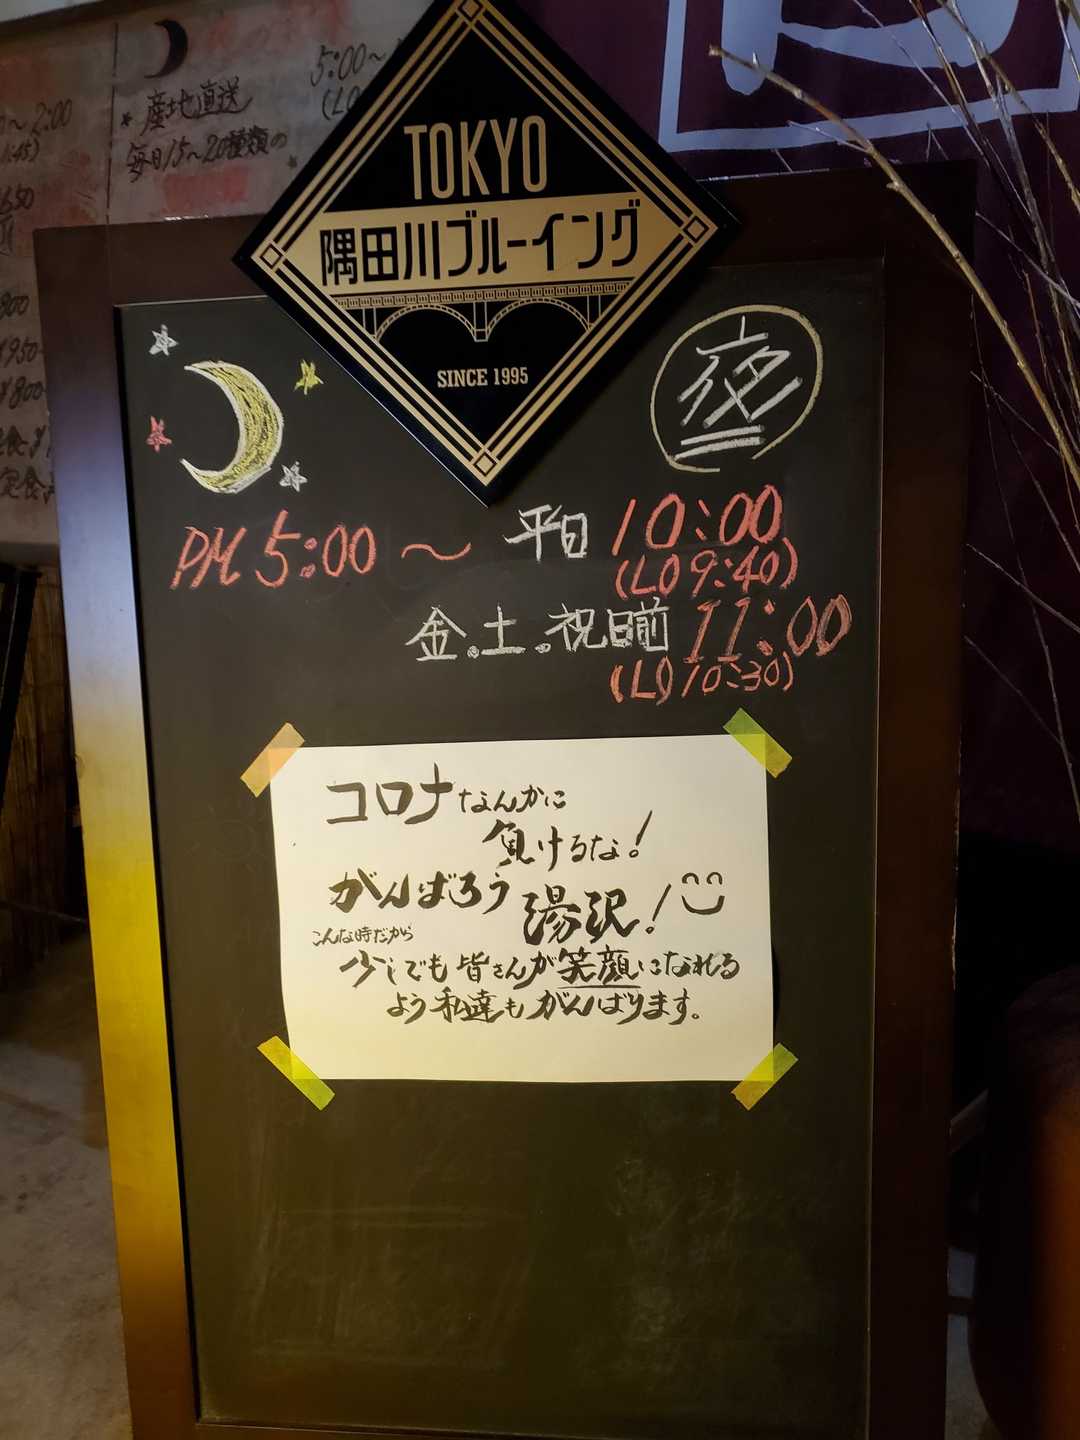 ★産地直送
毎日15~20種類の
5:00~
TOKYO
隅田川ブルーイング
SINCE 1995
夜
PM 5:00 ~ 平日 10:00
(LO 9:40)
金.土.祝日前 11:00
(LO 10:30)
コロナなんかに
負けるな!
がんばろう湯沢!
こんな時だから
少しでも皆さんが笑顔になれる
よう私達もがんばります。